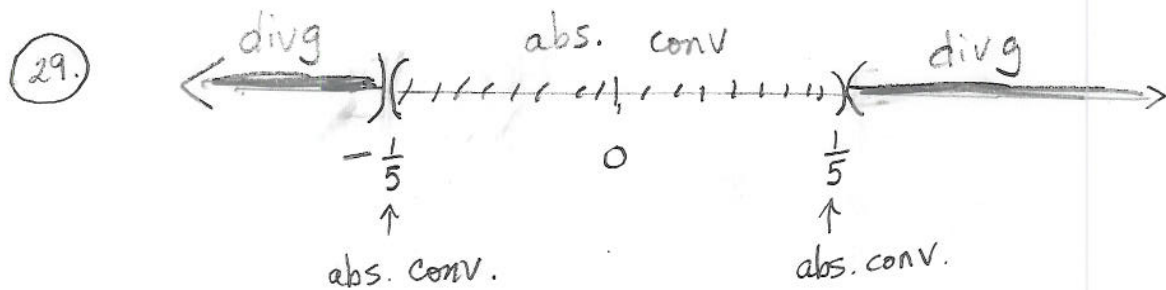 29.
divg abs. conv divg
- 1/5 0 1/5
abs. conv. abs. conv.